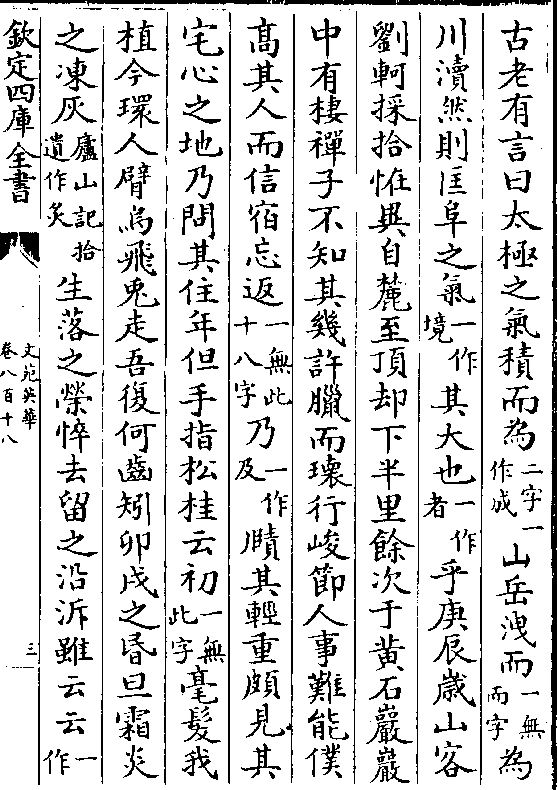 古老有言曰太極之氣積而為二字一作成山岳洩而一無而字為
川瀆然則匡阜之氣一作境其大也一作者乎庚辰嵗山客
劉軻採拾恠異自麓至頂却下半里餘次于黄石巖巖
中有棲禪子不知其幾許臘而瓌行峻節人事難能僕
髙其人而信宿忘返一無此十八字乃一作及賾其輕重頗見其
宅心之地乃問其住年但手指松桂云初一無此字毫髮我
植今環人臂烏飛兎走吾復何齒矧卯戌之昏旦霜炎
之凍灰廬山記拾遺作炙生落之榮悴去留之沿泝雖云云一作
欽定四庫全書
文苑英華
卷八百十八
三